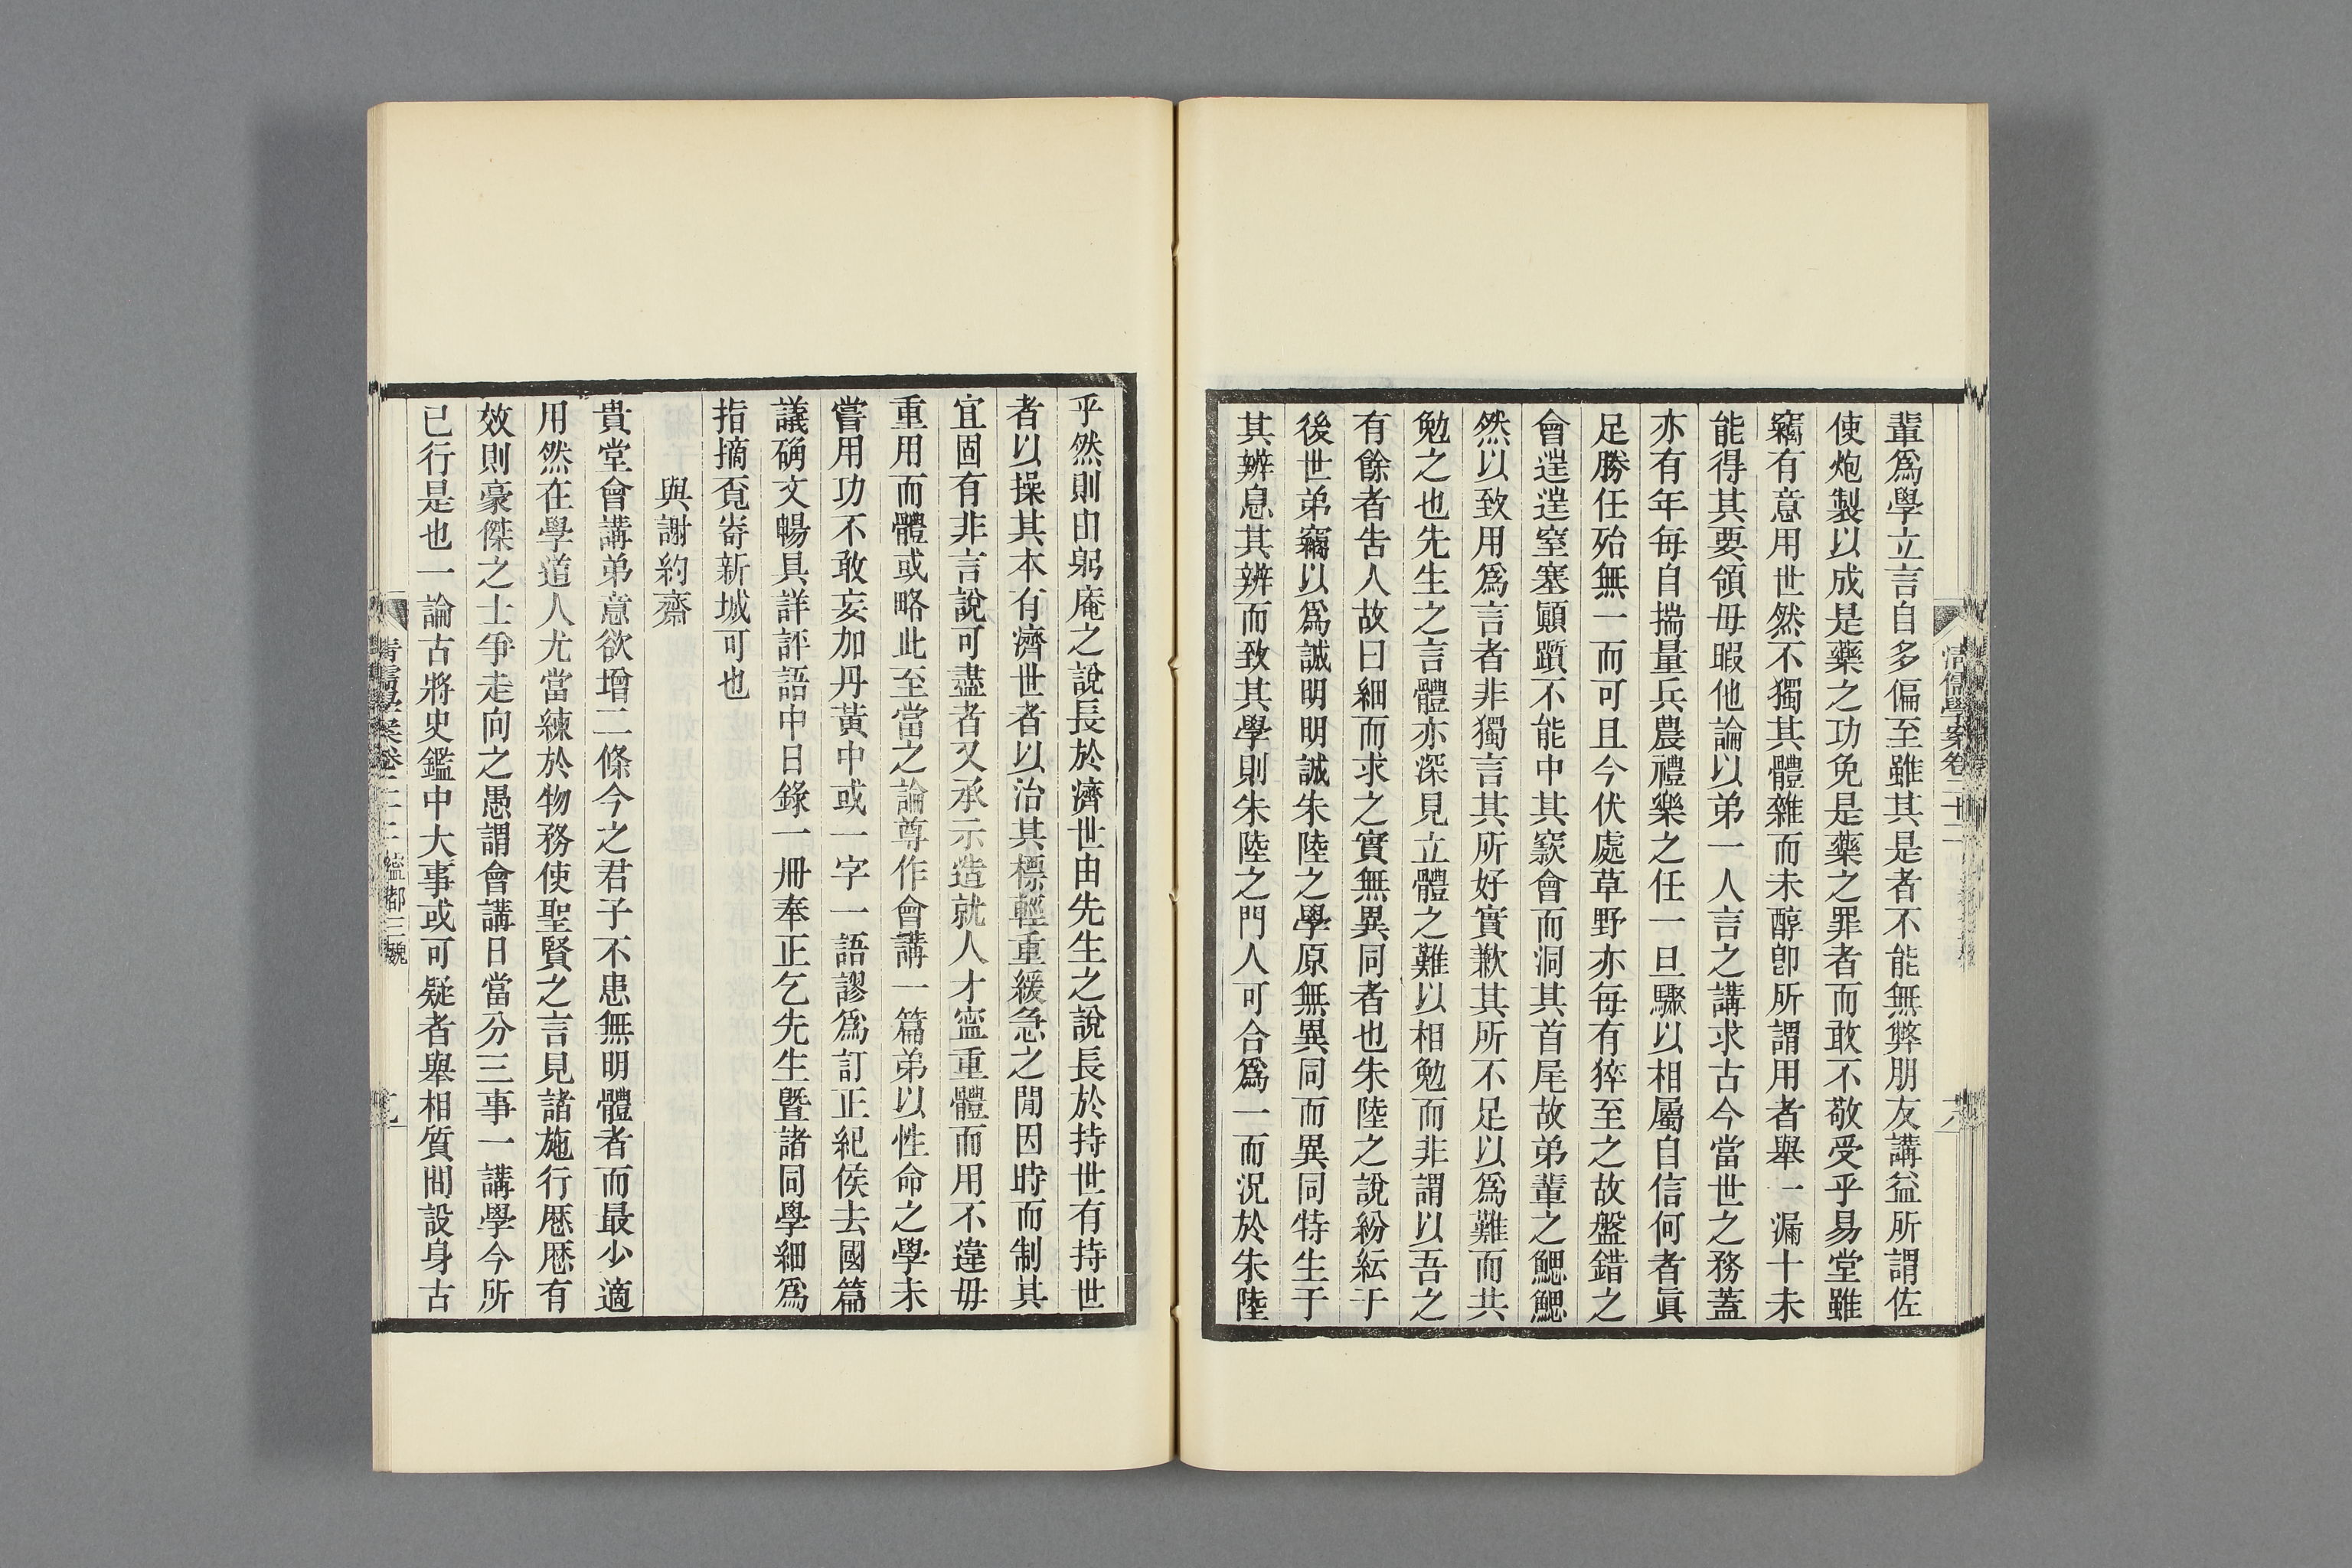 輩爲學立言自多偏至雖其是者不能無弊朋友講益所謂佐
使炮製以成是藥之功免是藥之罪者而敢不敬受乎易堂雖
竊有意用世然不獨其體雜而未醇卽所謂用者舉一漏十未
能得其要領毋暇他論以弟一人言之講求古今當世之務蓋
亦有年每自揣量兵農禮樂之任一旦驟以相屬自信何者眞
足勝任殆無一而可且今伏處草野亦每有猝至之故盤錯之
會逞逞窒塞顚躓不能中其窾會而洞其首尾故弟輩之鰓鰓
然以致用爲言者非獨言其所好實歉其所不足以爲難而共
勉之也先生之言體亦深見立體之難以相勉而非謂以吾之
有餘者吿人故曰細而求之實無異同者也朱陸之說紛紜于
後世弟竊以爲誠明明誠朱陸之學原無異同而異同特生于
其辨息其辨而致其學則朱陸之門人可合爲一而況於朱陸
乎然則由躬庵之說長於濟世由先生之說長於持世有持世
者以操其本有濟世者以治其標輕重緩急之閒因時而制其
宜固有非言說可盡者又承示造就人才寍重體而用不違毋
重用而體或略此至當之論尊作會講一篇弟以性命之學未
嘗用功不敢妄加丹黃中或一字一語謬爲訂正紀侯去國篇
議确文暢具詳評語中日錄一冊奉正乞先生曁諸同學細爲
指摘覔寄新城可也
與謝約齋
貴堂會講弟意欲增二條今之君子不患無明體者而最少適
用然在學道人尤當練於物務使聖賢之言見諸施行歷歷有
效則豪傑之士爭走向之愚謂會講日當分三事一講學今所
已行是也一論古將史鑑中大事或可疑者舉相質問設身古
清儒學案卷二十二